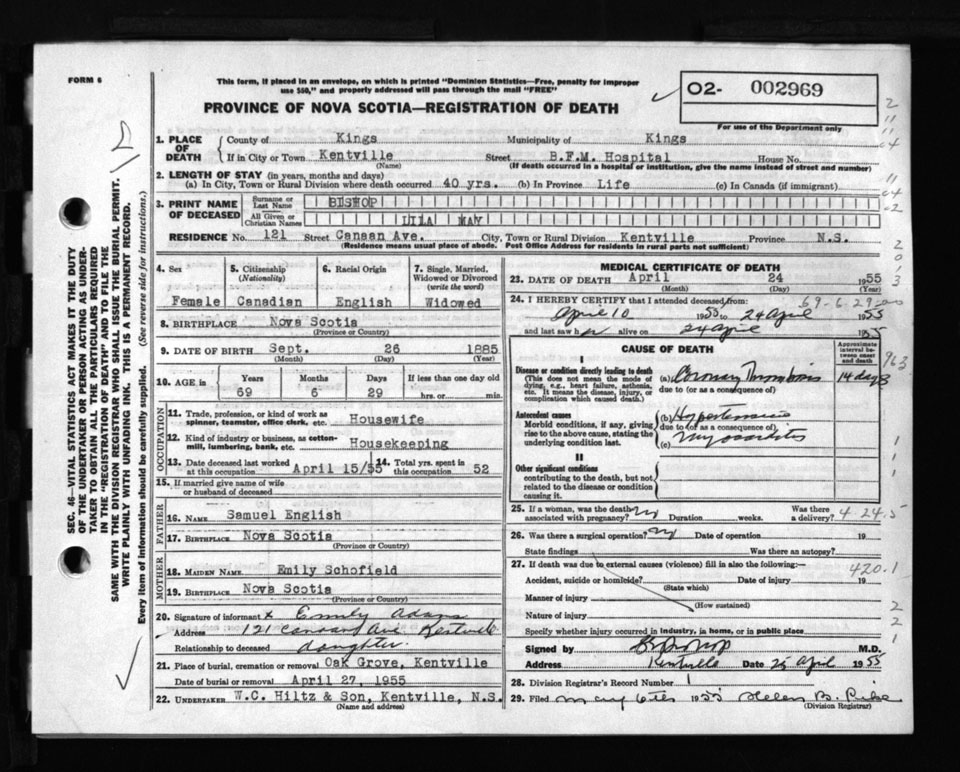 FORM 6
This form, if placed in an envelope, on which is printed "Dominion Statistics—Free, penalty for improper
use $50," and properly addressed will pass through the mail "FREE"
PROVINCE OF NOVA SCOTIA—REGISTRATION OF DEATH
O2- 002969
For use of the Department only
SEC. 46—VITAL STATISTICS ACT MAKES IT THE DUTY
OF THE UNDERTAKER OR PERSON ACTING AS UNDER-
TAKER TO OBTAIN ALL THE PARTICULARS REQUIRED
IN THE "REGISTRATION OF DEATH" AND TO FILE THE
SAME WITH THE DIVISION REGISTRAR WHO SHALL ISSUE THE BURIAL PERMIT.
WRITE PLAINLY WITH UNFADING INK. THIS IS A PERMANENT RECORD.
Every item of information should be carefully supplied. (See reverse side for instructions.)
1. PLACE OF DEATH County of Kings Municipality of Kings
If in City or Town Kentville Street B.F.M. Hospital House No.
(Name) (If death occurred in a hospital or institution, give the name instead of street and number)
2. LENGTH OF STAY (in years, months and days)
(a) In City, Town or Rural Division where death occurred 40 yrs. (b) In Province Life (c) In Canada (if immigrant)
3. PRINT NAME OF DECEASED Surname or Last Name BISHOP
All Given or Christian Names LILA MAY
RESIDENCE No. 121 Street Canaan Ave. City, Town or Rural Division Kentville Province N.S.
(Residence means usual place of abode. Post Office Address for residents in rural parts not sufficient)
4. Sex 5. Citizenship (Nationality) 6. Racial Origin 7. Single, Married, Widowed or Divorced (write the word)
Female Canadian English Widowed
8. BIRTHPLACE Nova Scotia
(Province or Country)
9. DATE OF BIRTH Sept. 26 1885
(Month) (Day) (Year)
10. AGE in Years Months Days If less than one day old
69 6 29 hrs. or min.
OCCUPATION
11. Trade, profession, or kind of work as spinner, teamster, office clerk, etc. Housewife
12. Kind of industry or business, as cotton-mill, lumbering, bank, etc. Housekeeping
13. Date deceased last worked at this occupation April 15/55 14. Total yrs. spent in this occupation 52
15. If married give name of wife or husband of deceased
FATHER
16. NAME Samuel English
17. BIRTHPLACE Nova Scotia
(Province or Country)
MOTHER
18. MAIDEN NAME Emily Schofield
19. BIRTHPLACE Nova Scotia
(Province or Country)
20. Signature of informant x Emily Adams
Address 121 Canaan Ave Kentville
Relationship to deceased daughter
21. Place of burial, cremation or removal Oak Grove, Kentville
Date of burial or removal April 27, 1955
22. UNDERTAKER W.C. Hiltz & Son, Kentville, N.S.
(Name and address)
MEDICAL CERTIFICATE OF DEATH
23. DATE OF DEATH April 24 1955
(Month) (Day)
24. I HEREBY CERTIFY that I attended deceased from: 69-6-29
April 10 1955 to 24 April 1955
and last saw her alive on 24 April 1955
CAUSE OF DEATH
Approximate interval between onset and death
963
I
Disease or condition directly leading to death
(This does not mean the mode of dying, e.g., heart failure, asthenia, etc. It means the disease, injury, or complication which caused death.)
(a) Coronary Thrombosis 14 days
due to (or as a consequence of)
Antecedent causes
Morbid conditions, if any, giving rise to the above cause, stating the underlying condition last.
(b) Hypertension
due to (or as a consequence of)
(c) Myocarditis
II
Other significant conditions
contributing to the death, but not related to the disease or condition causing it.
25. If a woman, was the death associated with pregnancy? No Duration weeks. Was there a delivery? 4-24-5
26. Was there a surgical operation? No Date of operation 19
State findings Was there an autopsy?
27. If death was due to external causes (violence) fill in also the following:— 420.1
Accident, suicide or homicide? Date of injury 19
(State which)
Manner of injury
(How sustained)
Nature of injury
Specify whether injury occurred in industry, in home, or in public place
Signed by M.D.
Address Kentville Date 25 April 1955
28. Division Registrar's Record Number 1
29. Filed May 6th 1955 Helen B.
(Division Registrar)